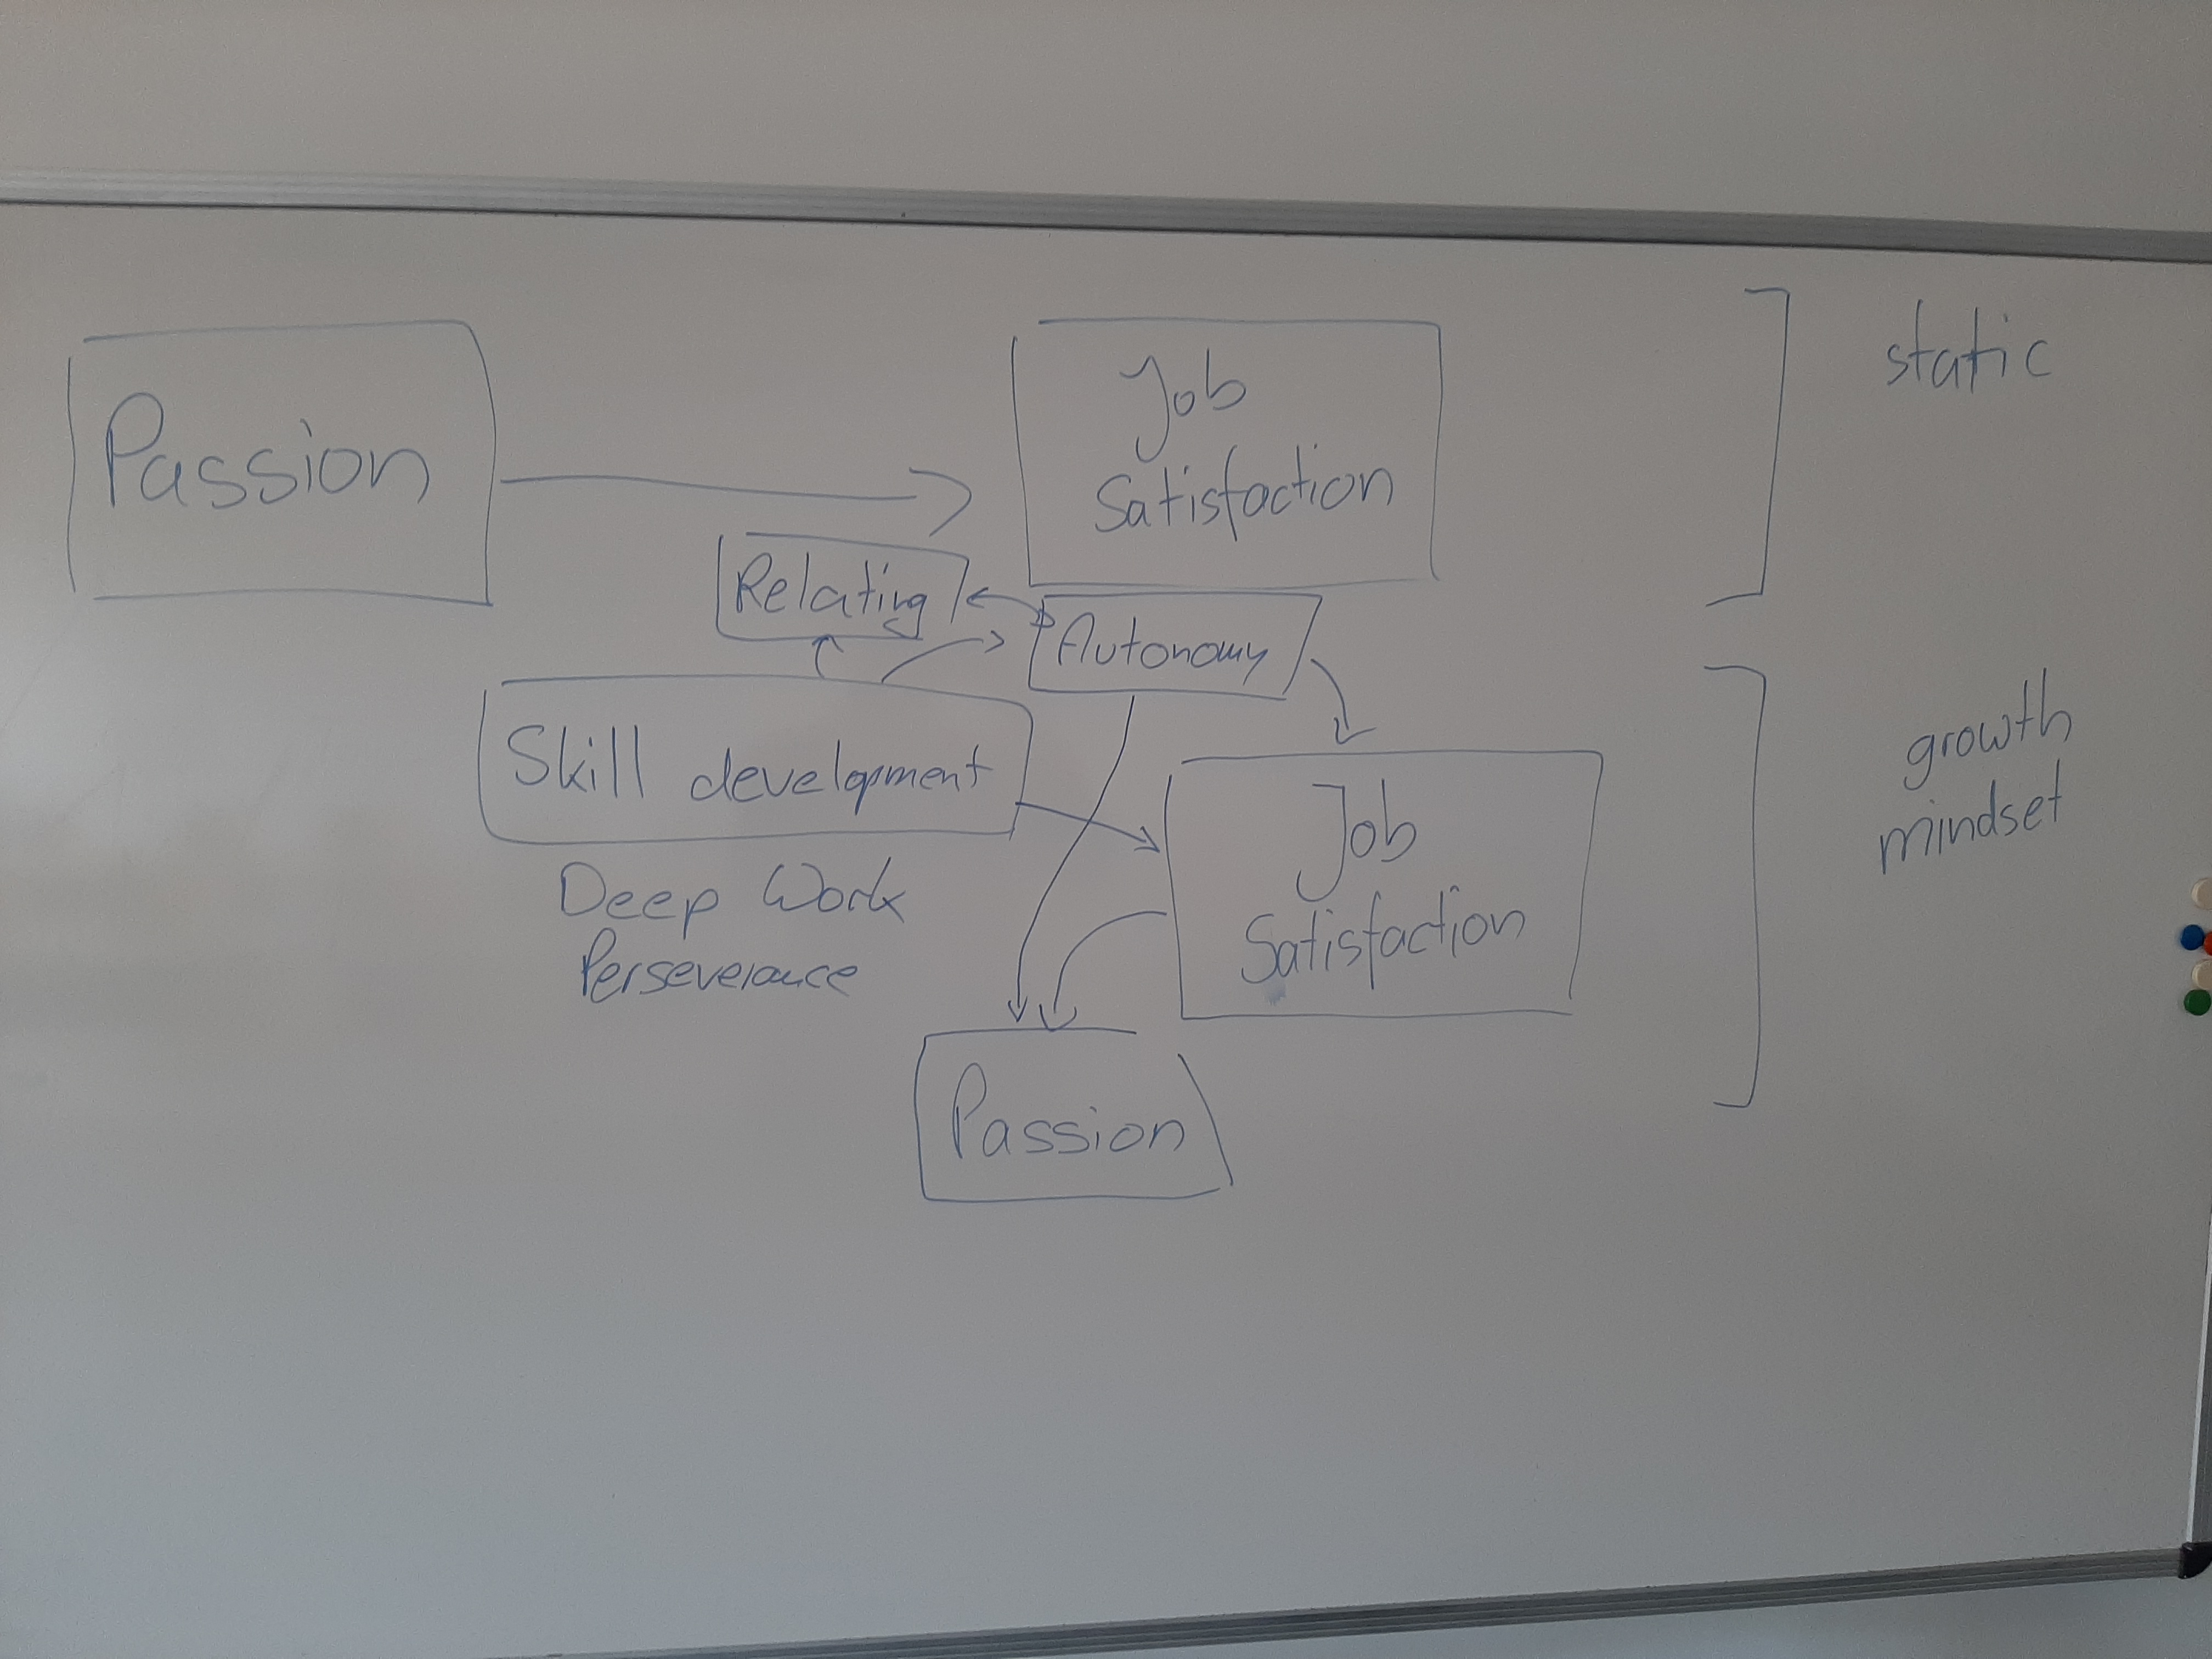 Passion
Job
Satisfaction
static
Relating
Autonomy
Skill development
Deep Work
Perseverance
Job
Satisfaction
growth
mindset
Passion